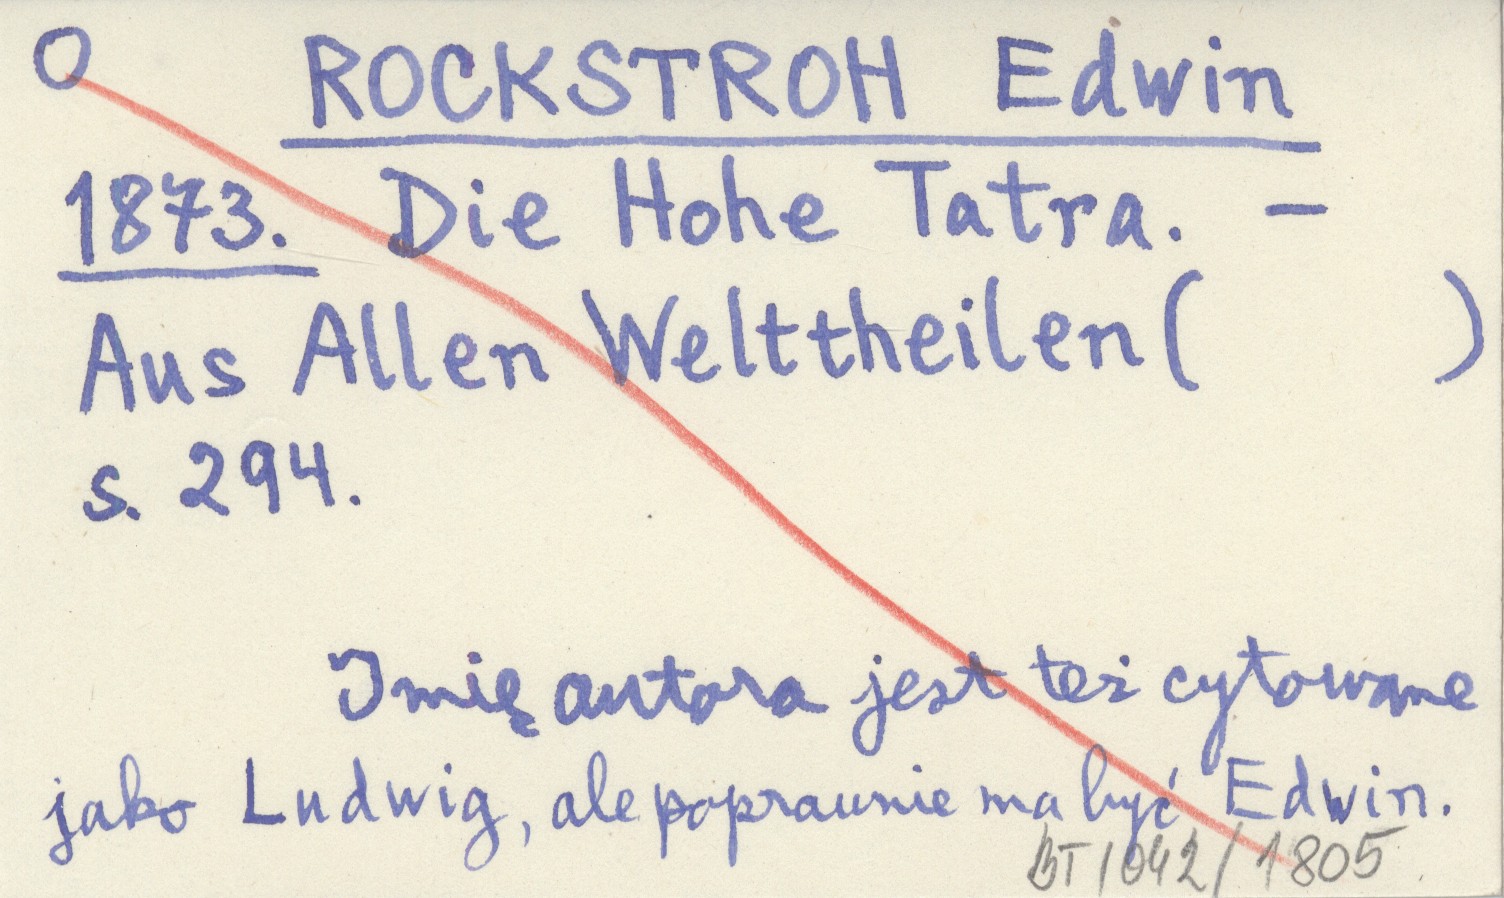 O ROCKSTROH Edwin
1873. Die Hohe Tatra. -
Aus Allen Welttheilen ( )
s. 294.
Imię autora jest też cytowane
jako Ludwig, ale poprawnie ma być Edwin.
BT/042/1805